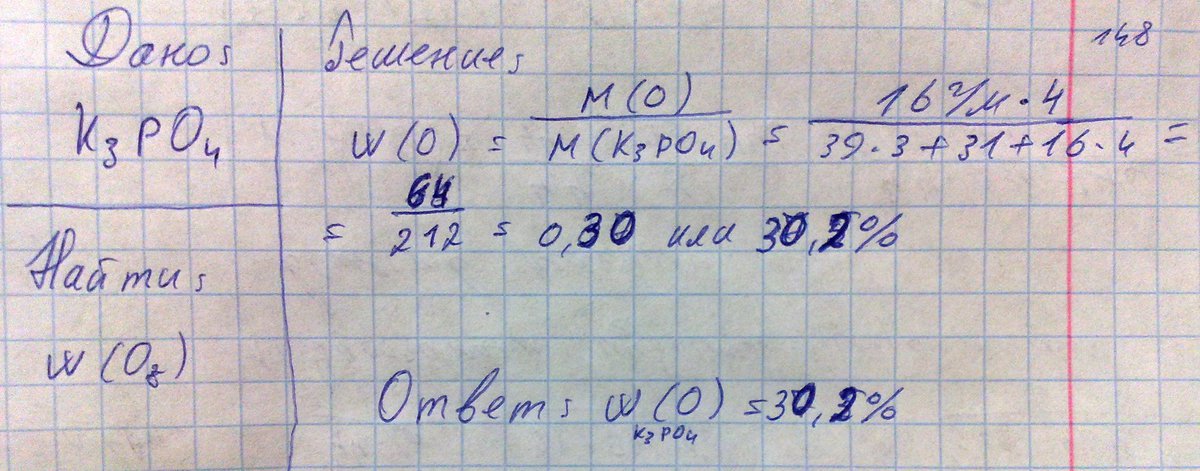 148
Дано:
K₃PO₄
Найти:
w(O₂)
Решение:
w(O) = M(O) / M(K₃PO₄) = 16 г/м · 4 / 39·3+31+16·4 =
= 64/212 = 0,30 или 30,2%
Ответ: w(O) = 30,2%
K₃PO₄